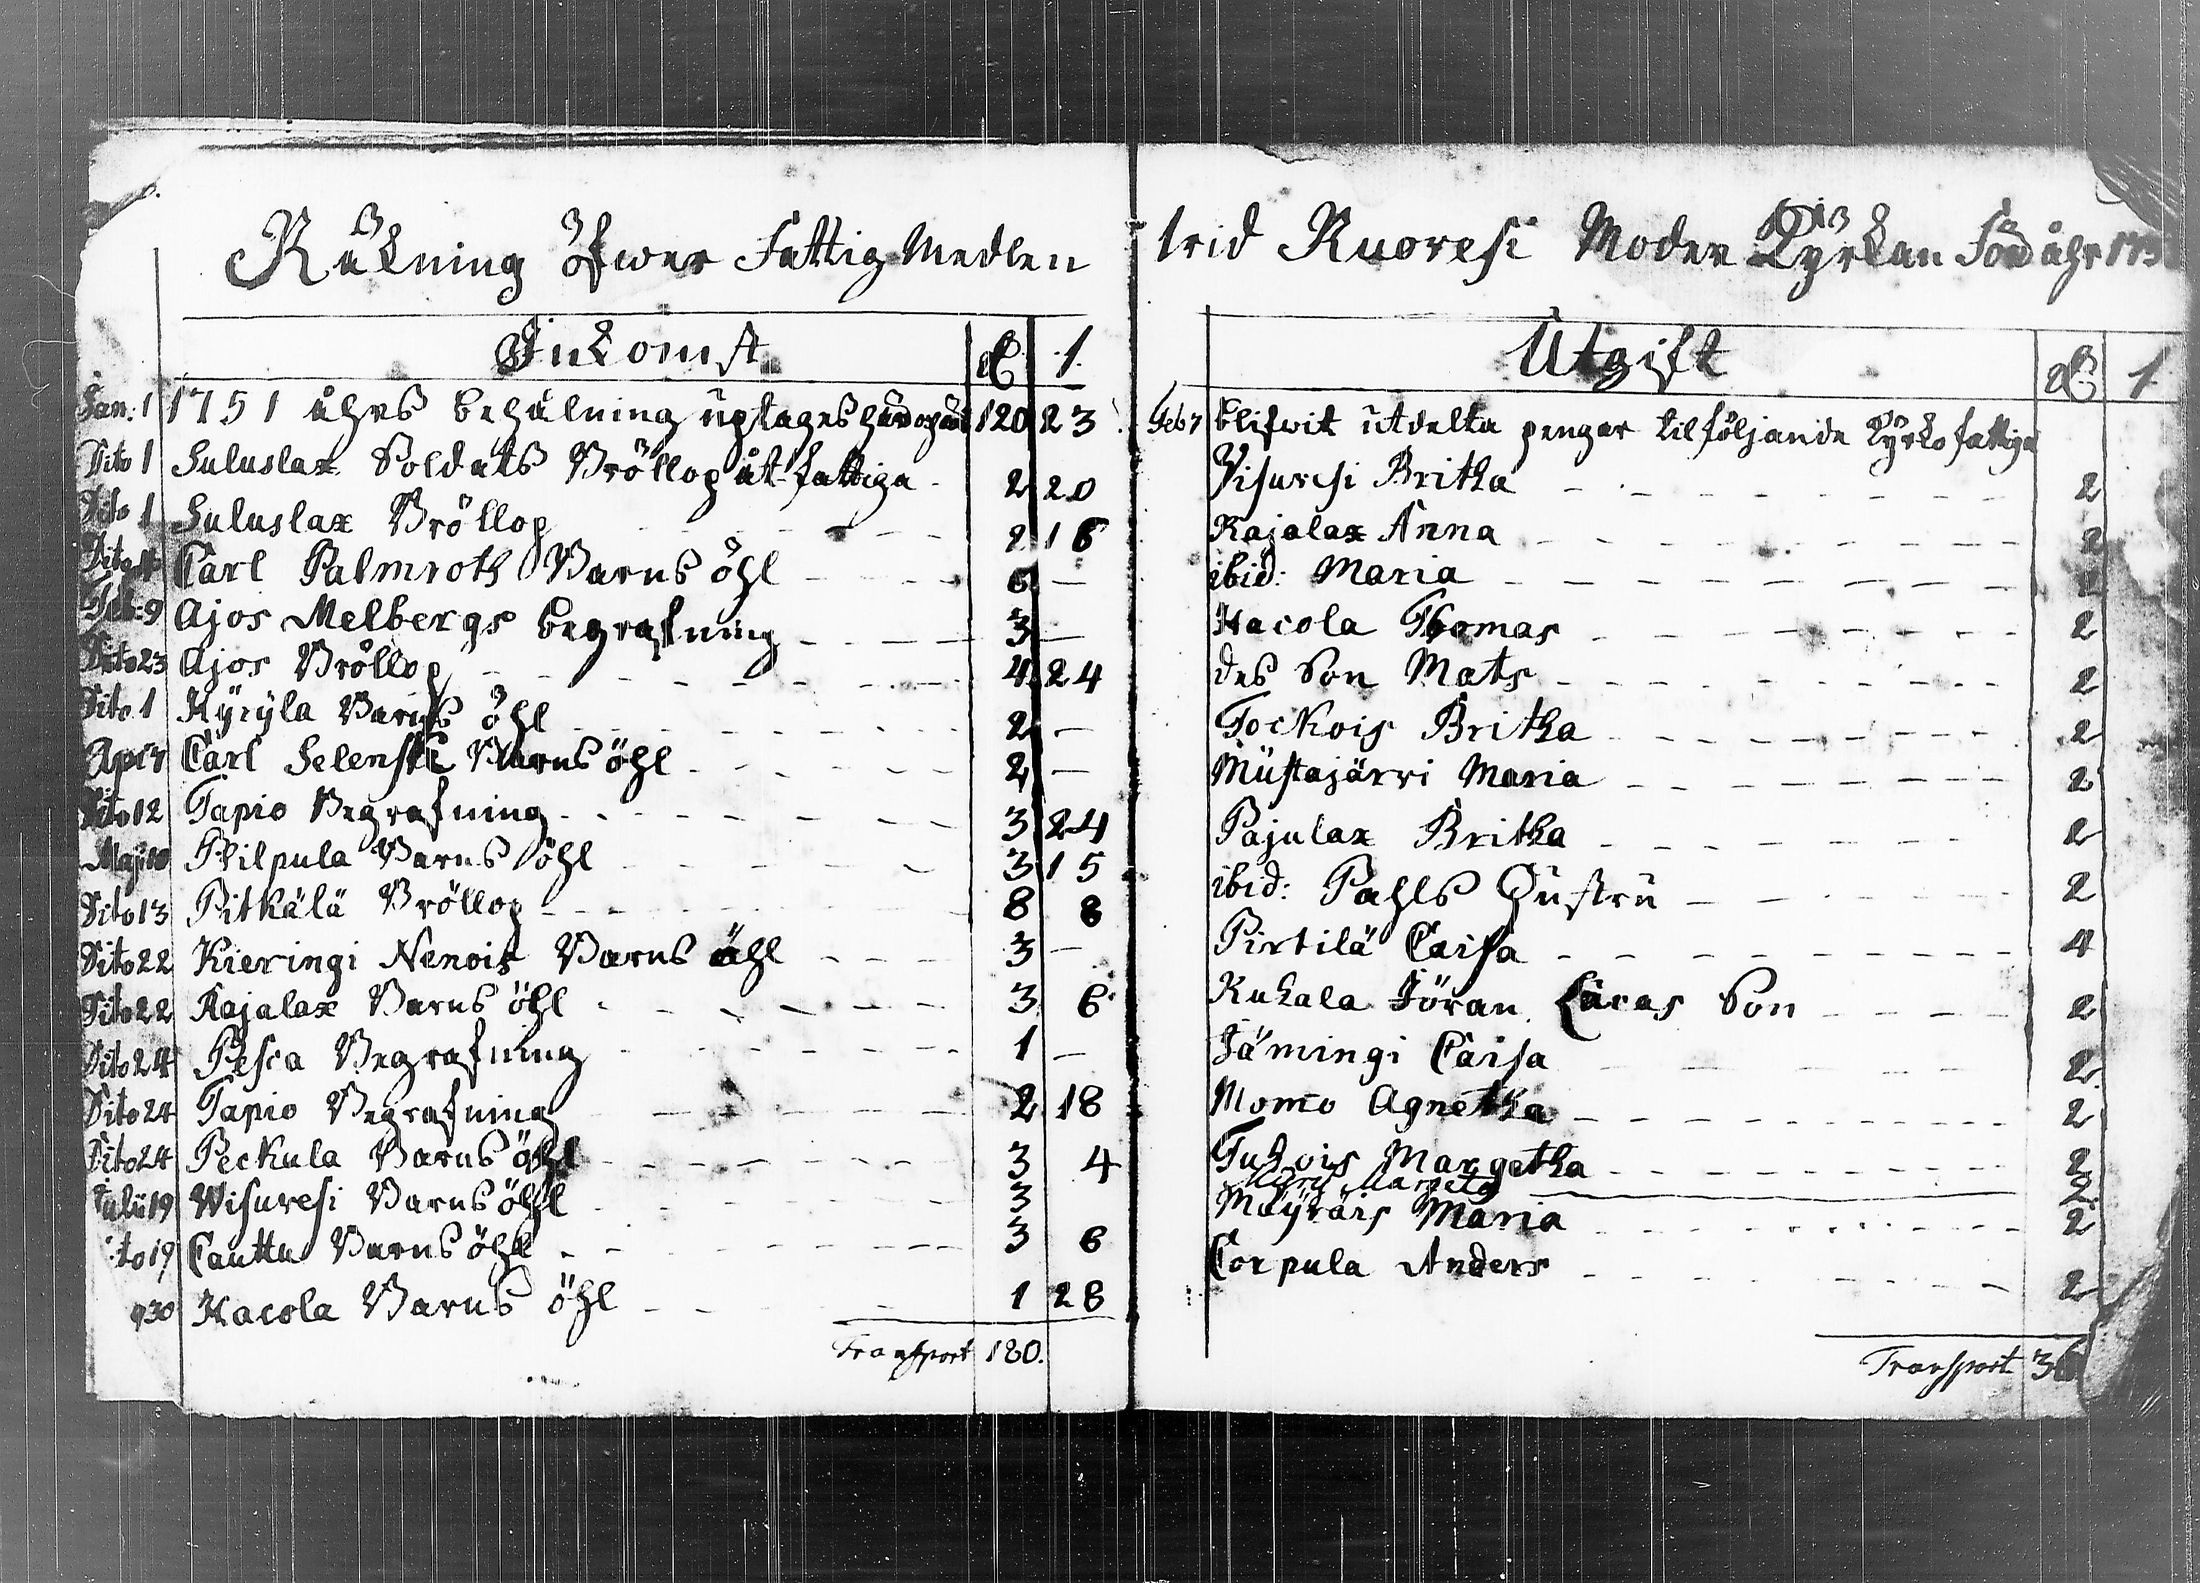 Räkning öfwer Fattig Medlen
Inkomst
Jan: 1 1751 åhrs behålning uptages 120 23
Dito 1 Suluslax Soldats Bröllop åt fattiga 2 20
Dito 1 Suluslax Bröllop 2 16
Dito Carl Palmroth Barns öhl 6 —
Feb: 9 Ajos Melbergs begrafning 3 —
Dito 23 Ajos Bröllop 4 24
Dito 1 Kyryla Barns öhl 2 —
Apr 7 Carl Selenski Barns öhl 2 —
Dito 12 Tapio Begrafning 3 24
Maji 10 Philpula Barns öhl 3 15
Dito 13 Pitkälä Bröllop 8 8
Dito 22 Kieringi Nenois Barns öhl 3 —
Dito 22 Rajalax Barns öhl 3 6
Dito 24 Pesca Begrafning 1 —
Dito 24 Tapio Begrafning 2 18
Dito 24 Peckula Barns öhl 3 4
Julii 19 Wisuresi Barns öhl 3
Dito 19 Cauttu Barns öhl 3 6
30 Kacola Barns öhl 1 28
Transport 180.
wid Ruoresi Moder Kyrkan För åhr 175
Utgift
Feb 7 blifwit utdelta pengar til följande Kyrko fattiga
Visuresi Britha 2
Rajalax Anna 2
ibid: Maria 2
Hacola Thomas 2
des Son Mats 2
Tockois Britha 2
Mustajärvi Maria 2
Pajulax Britha 2
ibid: Pahls Hustru 2
Pirtilä Caisa 4
Kukala Jöran Lucas Son 2
Jämingi Caisa 2
Momo Agnetha 2
Tukois Margetha 2
Margeta 2
Mäyräis Maria 2
Corpula Anders 2
Transport 36